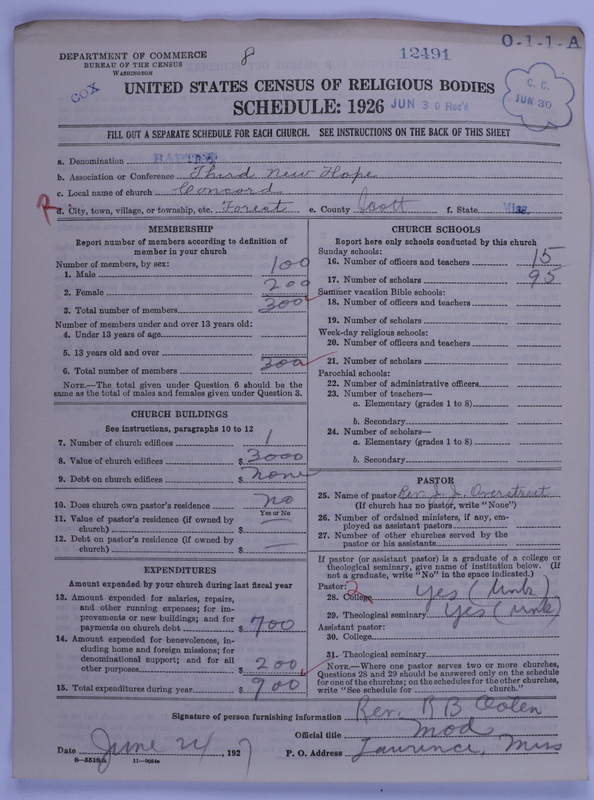 O-1-1-A
DEPARTMENT OF COMMERCE
BUREAU OF THE CENSUS
WASHINGTON
8
12491
COX
UNITED STATES CENSUS OF RELIGIOUS BODIES
SCHEDULE: 1926
JUN 30 Rec'd
C. C.
JUN 30
FILL OUT A SEPARATE SCHEDULE FOR EACH CHURCH. SEE INSTRUCTIONS ON THE BACK OF THIS SHEET
a. Denomination BAPTIST
b. Association or Conference Third New Hope
c. Local name of church Concord
R. d. City, town, village, or township, etc. Forest e. County Scott f. State Miss.
MEMBERSHIP
Report number of members according to definition of
member in your church
Number of members, by sex:
1. Male 100
2. Female 200
3. Total number of members 300
Number of members under and over 13 years old:
4. Under 13 years of age
5. 13 years old and over
6. Total number of members 300
NOTE.—The total given under Question 6 should be the
same as the total of males and females given under Question 3.
CHURCH BUILDINGS
See instructions, paragraphs 10 to 12
7. Number of church edifices 1
8. Value of church edifices $ 3000
9. Debt on church edifices $ none
10. Does church own pastor's residence no
Yes or No
11. Value of pastor's residence (if owned by
church) $ —
12. Debt on pastor's residence (if owned by
church) $ —
EXPENDITURES
Amount expended by your church during last fiscal year
13. Amount expended for salaries, repairs,
and other running expenses; for im-
provements or new buildings; and for
payments on church debt $ 700
14. Amount expended for benevolences, in-
cluding home and foreign missions; for
denominational support; and for all
other purposes $ 200
15. Total expenditures during year $ 900
CHURCH SCHOOLS
Report here only schools conducted by this church
Sunday schools:
16. Number of officers and teachers 15
17. Number of scholars 95
Summer vacation Bible schools:
18. Number of officers and teachers
19. Number of scholars
Week-day religious schools:
20. Number of officers and teachers
21. Number of scholars
Parochial schools:
22. Number of administrative officers
23. Number of teachers—
a. Elementary (grades 1 to 8)
b. Secondary
24. Number of scholars—
a. Elementary (grades 1 to 8)
b. Secondary
PASTOR
25. Name of pastor Rev. J. J. Overstreet
(If church has no pastor, write "None")
26. Number of ordained ministers, if any, em-
ployed as assistant pastors
27. Number of other churches served by the
pastor or his assistants
If pastor (or assistant pastor) is a graduate of a college or
theological seminary, give name of institution below. (If
not a graduate, write "No" in the space indicated.)
Pastor:
28. College Yes (Unk)
29. Theological seminary Yes (Unk)
Assistant pastor:
30. College
31. Theological seminary
NOTE.—Where one pastor serves two or more churches,
Questions 28 and 29 should be answered only on the schedule
for one of the churches; on the schedules for the other churches,
write "See schedule for church."
Signature of person furnishing information Rev. R B
Official title Mod
Date June 24, 1927 P. O. Address Lawrence, Miss
8—5516a 11—9054a